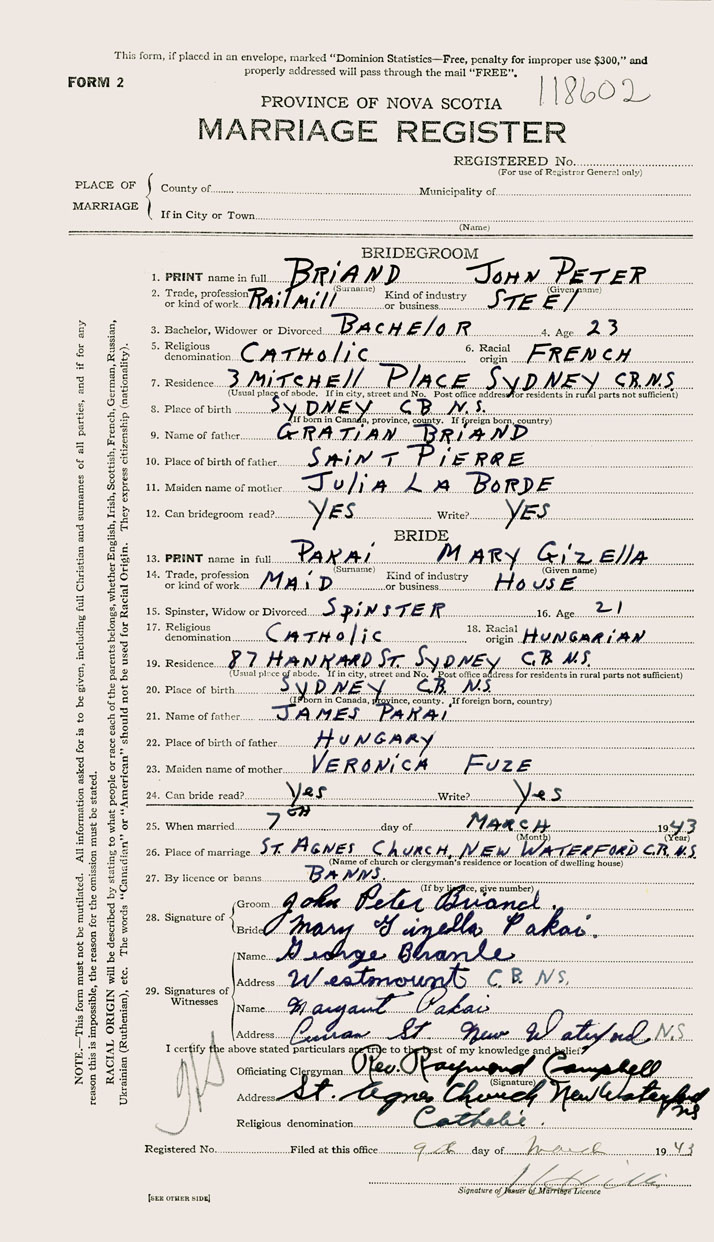 This form, if placed in an envelope, marked "Dominion Statistics—Free, penalty for improper use $300," and
properly addressed will pass through the mail "FREE".
FORM 2
118602
PROVINCE OF NOVA SCOTIA
MARRIAGE REGISTER
REGISTERED No.
(For use of Registrar General only)
PLACE OF MARRIAGE
County of
Municipality of
If in City or Town
(Name)
BRIDEGROOM
1. PRINT name in full BRIAND JOHN PETER
(Surname) (Given name)
2. Trade, profession or kind of work Railmill Kind of industry or business STEEl
3. Bachelor, Widower or Divorced BACHElOR 4. Age 23
5. Religious denomination CATHOlic 6. Racial origin FRENCH
7. Residence 3 MITCHEll PlACE SYDNEY C.B. N.S.
(Usual place of abode. If in city, street and No. Post office address for residents in rural parts not sufficient)
8. Place of birth SYDNEY CB N.S.
(If born in Canada, province, county. If foreign born, country)
9. Name of father GRATIAN BRIAND
10. Place of birth of father SAINT PIERRE
11. Maiden name of mother JuliA LA BORDE
12. Can bridegroom read? YES Write? YES
BRIDE
13. PRINT name in full PAKAI MARY GIZEllA
(Surname) (Given name)
14. Trade, profession or kind of work MAID Kind of industry or business HOUSE
15. Spinster, Widow or Divorced SPINSTER 16. Age 21
17. Religious denomination CATHOlic 18. Racial origin HUNGARIAN
19. Residence 87 HANKARD ST. SYDNEY C.B. N.S.
(Usual place of abode. If in city, street and No. Post office address for residents in rural parts not sufficient)
20. Place of birth SYDNEY C.B. N.S.
(If born in Canada, province, county. If foreign born, country)
21. Name of father JAMES PAKAI
22. Place of birth of father HUNGARY
23. Maiden name of mother VERONICA FUZE
24. Can bride read? Yes Write? Yes
25. When married 7th day of MARCH 1943
(Month) (Year)
26. Place of marriage ST. AGNES CHURCH, NEW WATERFORD C.B. N.S.
(Name of church or clergyman's residence or location of dwelling house)
27. By licence or banns BANNS.
(If by licence, give number)
28. Signature of
Groom John Peter Briand.
Bride Mary Gizella Pakai.
29. Signatures of Witnesses
Name George
Address Westmount C.B. N.S.
Name Margaret Pakai
Address Curran St New Waterford N.S
I certify the above stated particulars are true to the best of my knowledge and belief.
Officiating Clergyman Rev. Raymond Campbell
(Signature)
Address St. Agnes Church New Waterford NS
Religious denomination Catholic.
Registered No. Filed at this office 9th day of March 1943
Signature of Issuer of Marriage Licence
[SEE OTHER SIDE]
NOTE.—This form must not be mutilated. All information asked for is to be given, including full Christian and surnames of all parties, and if for any
reason this is impossible, the reason for the omission must be stated.
RACIAL ORIGIN will be described by stating to what people or race each of the parents belongs, whether English, Irish, Scottish, French, German, Russian,
Ukrainian (Ruthenian), etc. The words "Canadian" or "American" should not be used for Racial Origin. They express citizenship (nationality).